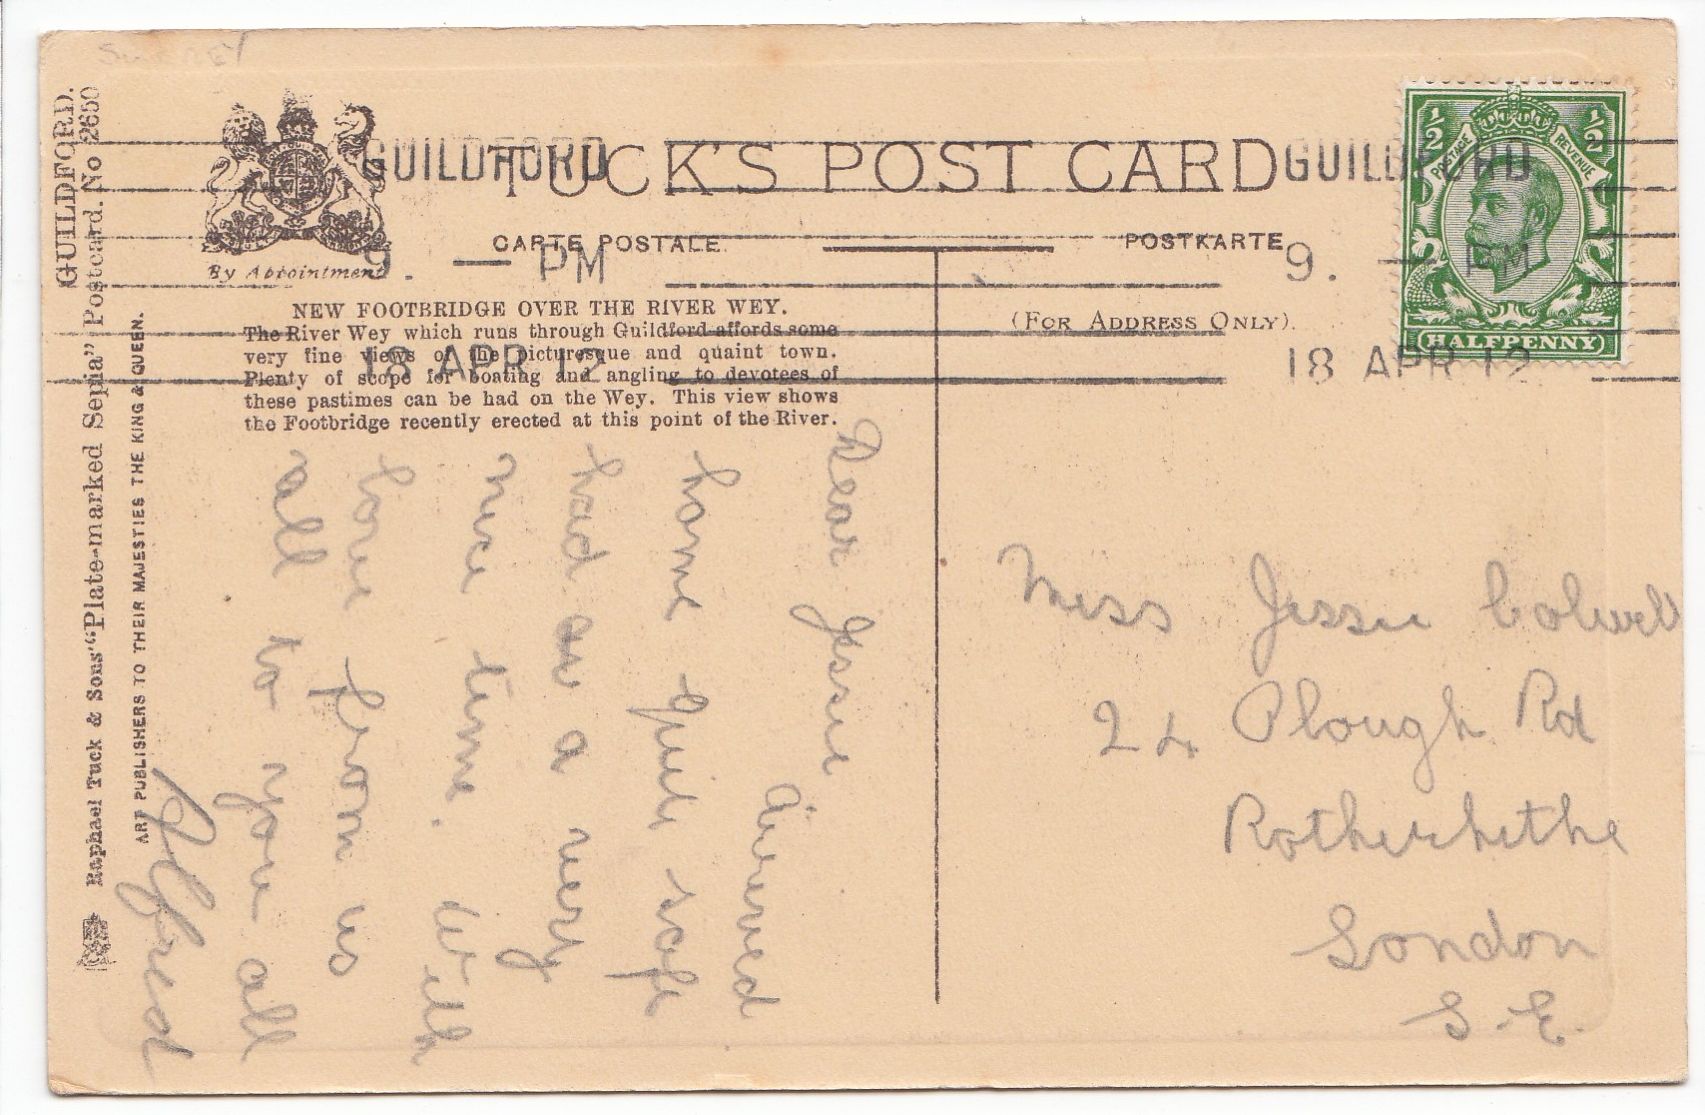 SURREY
GUILDFORD.
Raphael Tuck & Sons' "Plate-marked Sepia" Postcard. No 2650
ART PUBLISHERS TO THEIR MAJESTIES THE KING & QUEEN.
By Appointment
TUCK'S POST CARD
CARTE POSTALE
POSTKARTE
(FOR ADDRESS ONLY).
GUILDFORD
9. — PM
18 APR 12
GUILDFORD
9. — PM
18 APR 12
½ ½
POSTAGE REVENUE
HALFPENNY
NEW FOOTBRIDGE OVER THE RIVER WEY.
The River Wey which runs through Guildford affords some
very fine views of the picturesque and quaint town.
Plenty of scope for boating and angling to devotees of
these pastimes can be had on the Wey. This view shows
the Footbridge recently erected at this point of the River.
Dear Jessie
arrived
home quite safe
had as a very
nice time. With
love from us
all to you all
Alfred
Miss Jessie Colwell
24 Plough Rd
Rotherhithe
London
S.E.